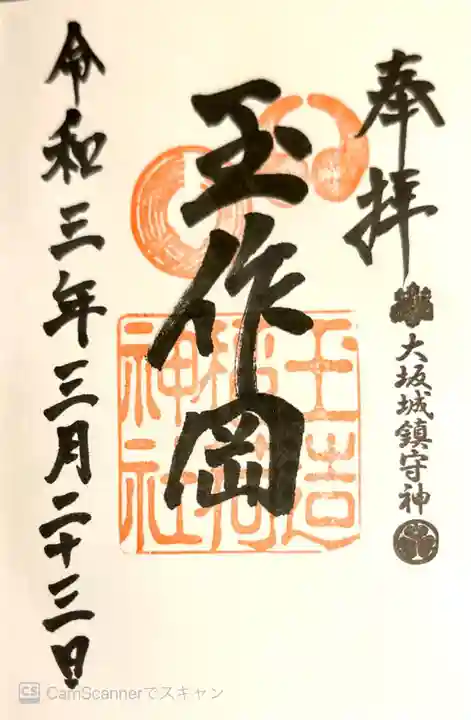 奉拝
大坂城鎮守神
玉作岡
玉造
稲荷
神社
令和三年三月二十三日
CS CamScannerでスキャン